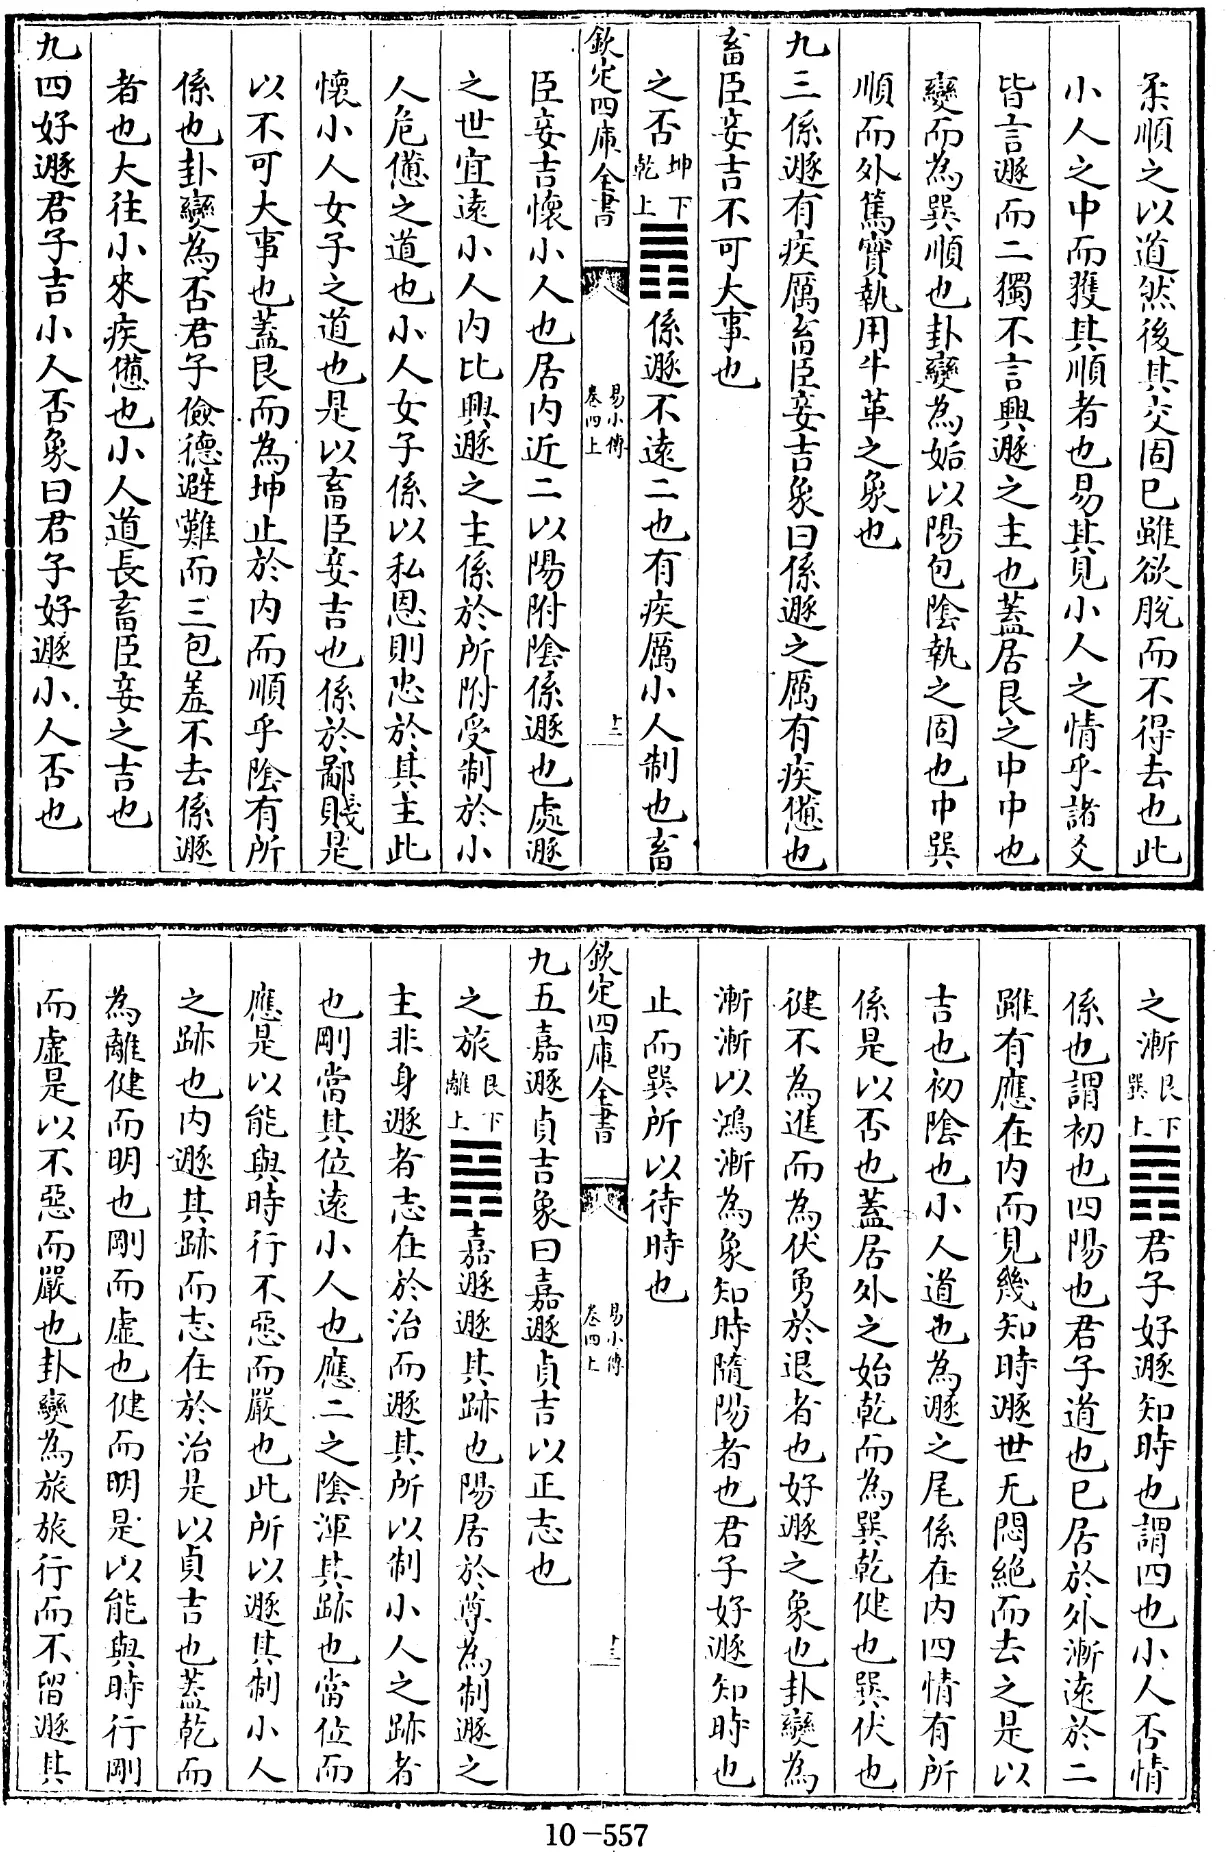 柔順之以道然後其交固已雖欲脫而不得去也此
小人之中而獲其順者也易其見小人之情乎諸爻
皆言遯而二獨不言興遯之主也蓋居艮之中中也
變而為巽順也卦變為姤以陽包陰執之固也中巽
順而外篤實執用牛革之象也
九三係遯有疾厲畜臣妾吉象曰係遯之厲有疾憊也
畜臣妾吉不可大事也
之否坤下乾上䷋係遯不遠二也有疾厲小人制也畜
欽定四庫全書 易小傳卷四上 十二
臣妾吉懷小人也居内近二以陽附陰係遯也處遯
之世宜遠小人内比興遯之主係於所附受制於小
人危憊之道也小人女子係以私恩則忠於其主此
懷小人女子之道也是以畜臣妾吉也係於鄙賤是
以不可大事也蓋艮而為坤止於内而順乎陰有所
係也卦變為否君子儉德避難而三包羞不去係遯
者也大往小來疾憊也小人道長畜臣妾之吉也
九四好遯君子吉小人否象曰君子好遯小人否也
之漸艮下巽上䷴君子好遯知時也謂四也小人否情
係也謂初也四陽也君子道也已居於外漸遠於二
雖有應在内而見幾知時遯世无悶絶而去之是以
吉也初陰也小人道也為遯之尾係在内四情有所
係是以否也蓋居外之始乾而為巽乾健也巽伏也
健不為進而為伏勇於退者也好遯之象也卦變為
漸漸以鴻漸為象知時隨陽者也君子好遯知時也
止而巽所以待時也
欽定四庫全書 易小傳卷四上 十三
九五嘉遯貞吉象曰嘉遯貞吉以正志也
之旅艮下離上䷷嘉遯遯其跡也陽居於尊為制遯之
主非身遯者志在於治而遯其所以制小人之跡者
也剛當其位遠小人也應二之陰渾其跡也當位而
應是以能與時行不惡而嚴也此所以遯其制小人
之跡也内遯其跡而志在於治是以貞吉也蓋乾而
為離健而明也剛而虛也健而明是以能與時行剛
而虛是以不惡而嚴也卦變為旅旅行而不留遯其
10-557